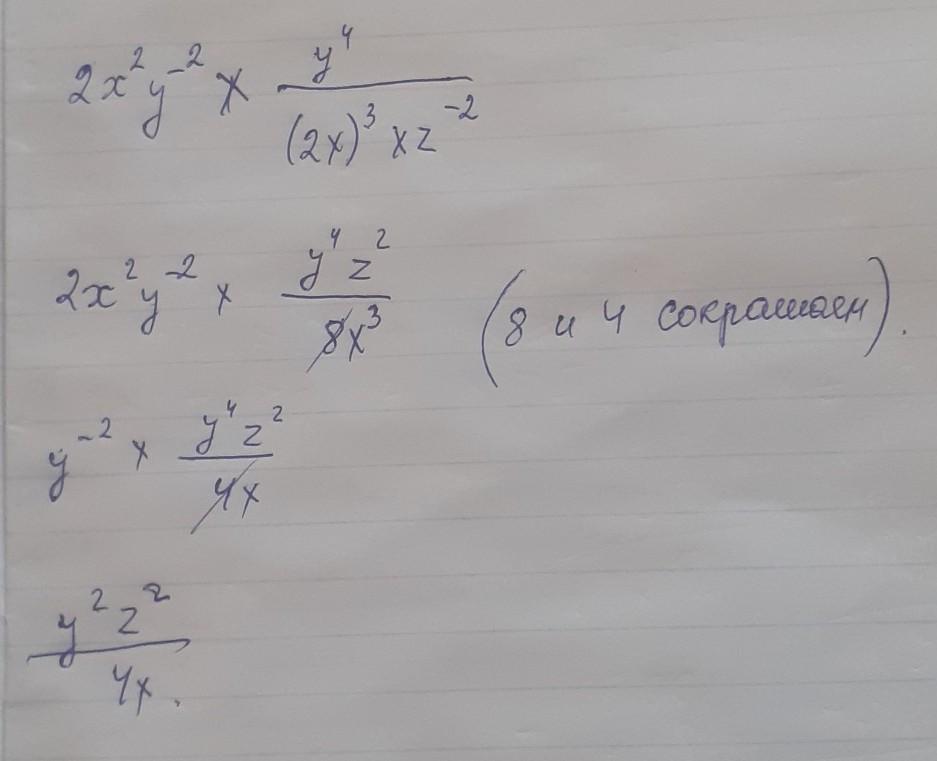 2x²y⁻² × y⁴ / (2x)³ × z⁻²
2x²y⁻² × y⁴z² / 8x³ (8 и 4 сокращаем).
y⁻² × y⁴z² / 4x
y²z² / 4x.